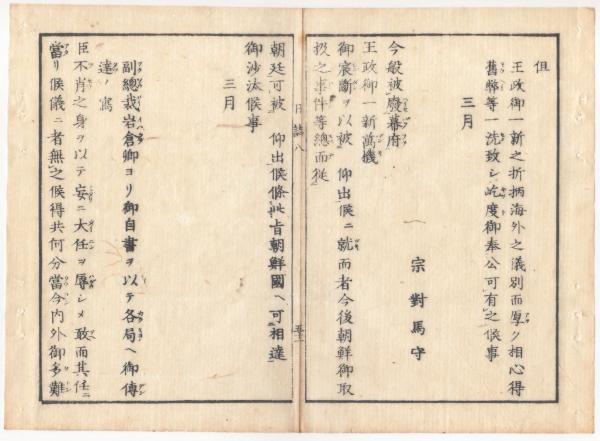 但
王政御一新之折柄海外之儀別而厚ク相心得
舊弊等一洗致シ屹度御奉公可有之候事
三月
宗對馬守
今般被廢幕府
王政御一新萬機
御宸斷ヲ以被 仰出候ニ就而者今後朝鮮御取
扱之事件等總而従
朝廷可被 仰出候條此旨朝鮮國ヘ可相達
御沙汰候事
三月
副總裁岩倉卿ヨリ御自書ヲ以テ各局ヘ御傳
達ノ寫
臣不肖之身ヲ以テ妄ニ大任ヲ辱シメ敢而其任ニ
當リ候儀ニ者無之候得共何分當今内外御多難
日誌八